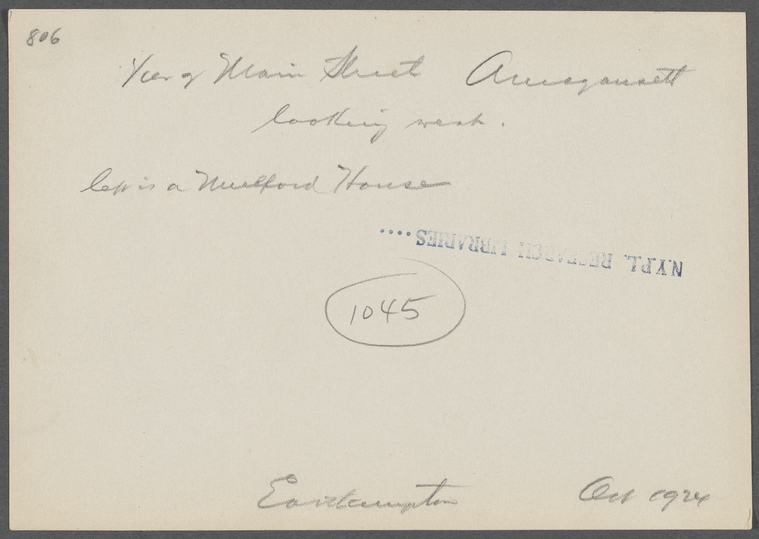 806
View of Main Street Amagansett
looking west.
left is a Mulford House
N.Y.P.L. RESEARCH LIBRARIES ....
1045
Easthampton Oct 1924